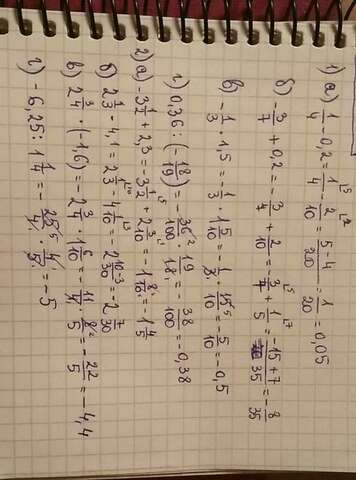 1) а) 1/4 - 0,2 = 1/4 - 2/10 = (5-4)/20 = 1/20 = 0,05
б) -3/7 + 0,2 = -3/7 + 2/10 = -3/7 + 1/5 = (-15+7)/35 = -8/35
в) -1/3 · 1,5 = -1/3 · 1 5/10 = -1/3 · 15/10 = -5/10 = -0,5
г) 0,36 : (-18/19) = -36/100 · 19/18 = -38/100 = -0,38
2) а) -3 1/2 + 2,3 = -3 1/2 + 2 3/10 = -1 8/10 = -1 4/5
б) 2 1/3 - 4,1 = 2 1/3 - 4 1/10 = -2 (10-3)/30 = -2 7/30
в) 2 3/4 · (-1,6) = -2 3/4 · 1 6/10 = -11/4 · 8/5 = -22/5 = -4,4
г) -6,25 : 1 1/4 = -25/4 · 4/5 = -5